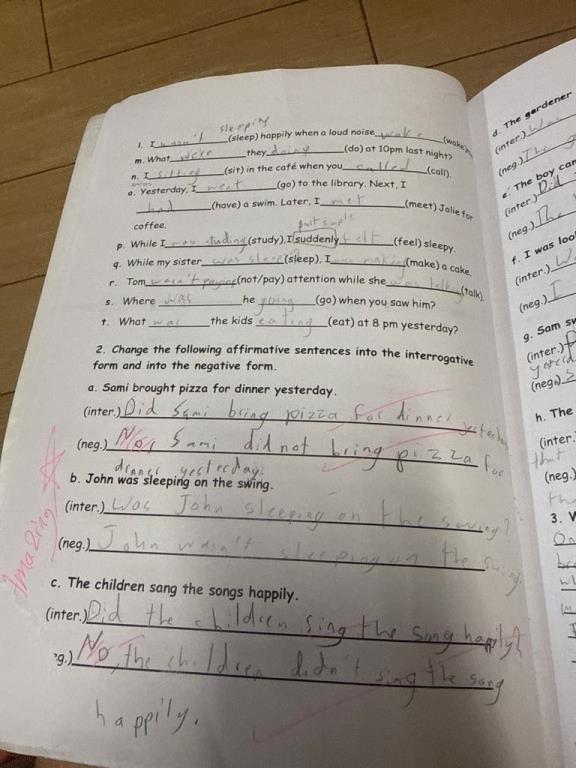 sleeping
l. I wasn't (sleep) happily when a loud noise woke (wake)
m. What were they doing (do) at 10pm last night?
n. I sitting (sit) in the café when you called (call).
was
o. Yesterday, I went (go) to the library. Next, I
had (have) a swim. Later, I met (meet) Jolie for
coffee.
past simple
p. While I was studing (study), I suddenly felt (feel) sleepy.
q. While my sister was sleep (sleep), I was making (make) a cake.
r. Tom wasn't paying (not/pay) attention while she was talking (talk).
s. Where was he going (go) when you saw him?
t. What was the kids eating (eat) at 8 pm yesterday?
2. Change the following affirmative sentences into the interrogative
form and into the negative form.
a. Sami brought pizza for dinner yesterday.
(inter.) Did Sami bring pizza for dinner yesterday
(neg.) No, Sami did not bring pizza for
dinner yesterday.
b. John was sleeping on the swing.
(inter.) Was John sleeping on the swing?
(neg.) John wasn't sleeping on the swing
Amazing
c. The children sang the songs happily.
(inter.) Did the children sing the song happily?
eg.) No, the children didn't sing the song
happily.
d. The gardener
(inter.) Was
(neg.) The g
e. The boy car
(inter.) Did
(neg.) The
f. I was loo
(inter.) Wa
(neg.) I
g. Sam sw
(inter.)
(neg.) S
h. The
(inter.
that
(neg.)
3. W